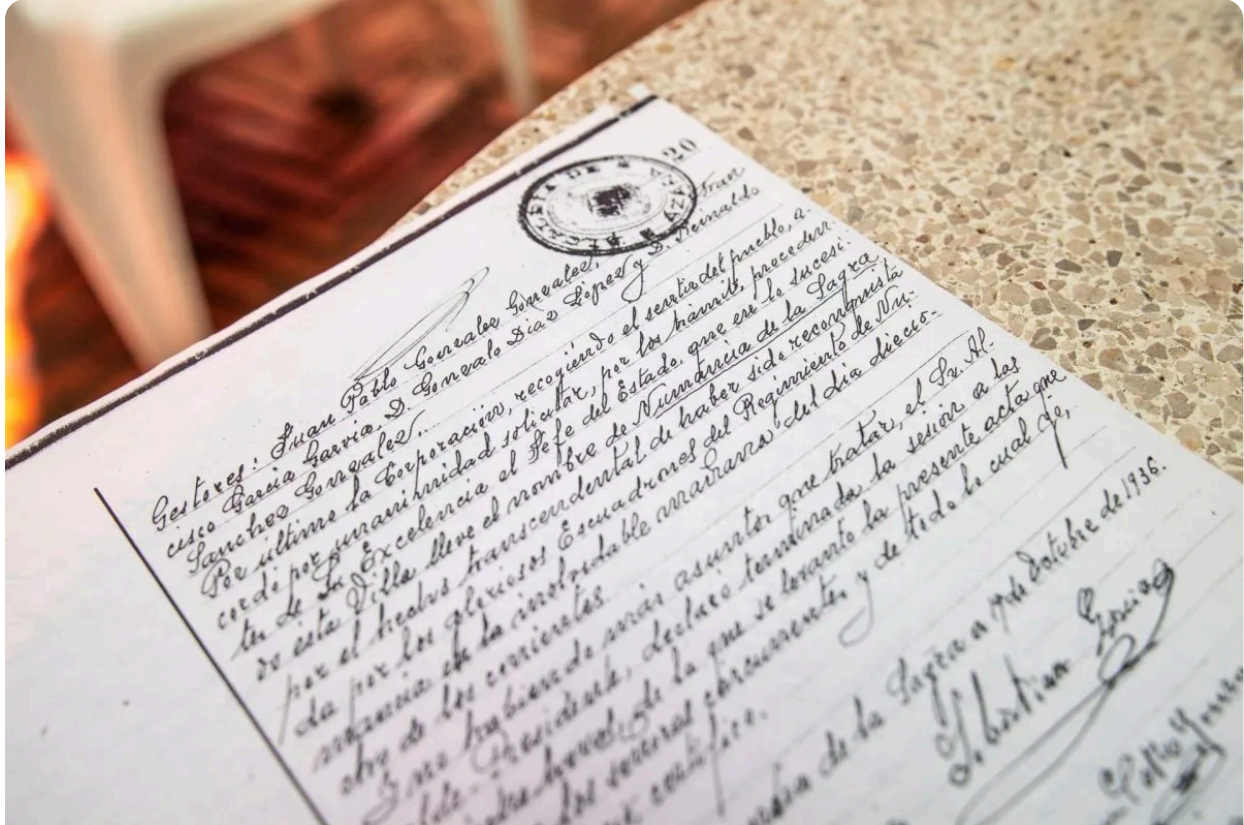 20
ALCALDIA DE
AZAÑA
Gestores: Juan Pablo Gonzalez Gonzalez, Fran
cisco Garcia Garcia, D. Gonzalo Diaz Lopez y D. Reinaldo
Sanchez Gonzalez.
Por último la Corporación, recogiendo el sentir del pueblo, a-
cordó por unanimidad solicitar, por los trámites procedecen
tes de Su Excelencia el Jefe del Estado, que en lo sucesi-
vo esta Villa lleve el nombre de Numancia de la Sagra
por el hecho transcendental de haber sido reconquista
da por los gloriosos Escuadrones del Regimiento de Nu-
mancia en la inolvidable mañana del día diecio-
cho de los corrientes.
Y no habiendo más asuntos que tratar, el Sr. Al-
calde-Presidente, declaró terminada la sesión a las
horas, de la que se levanta la presente acta que
los señores concurrentes y de todo lo cual yo,
certifico.
de la Sagra a 19 de Octubre de 1936.
Sebastian